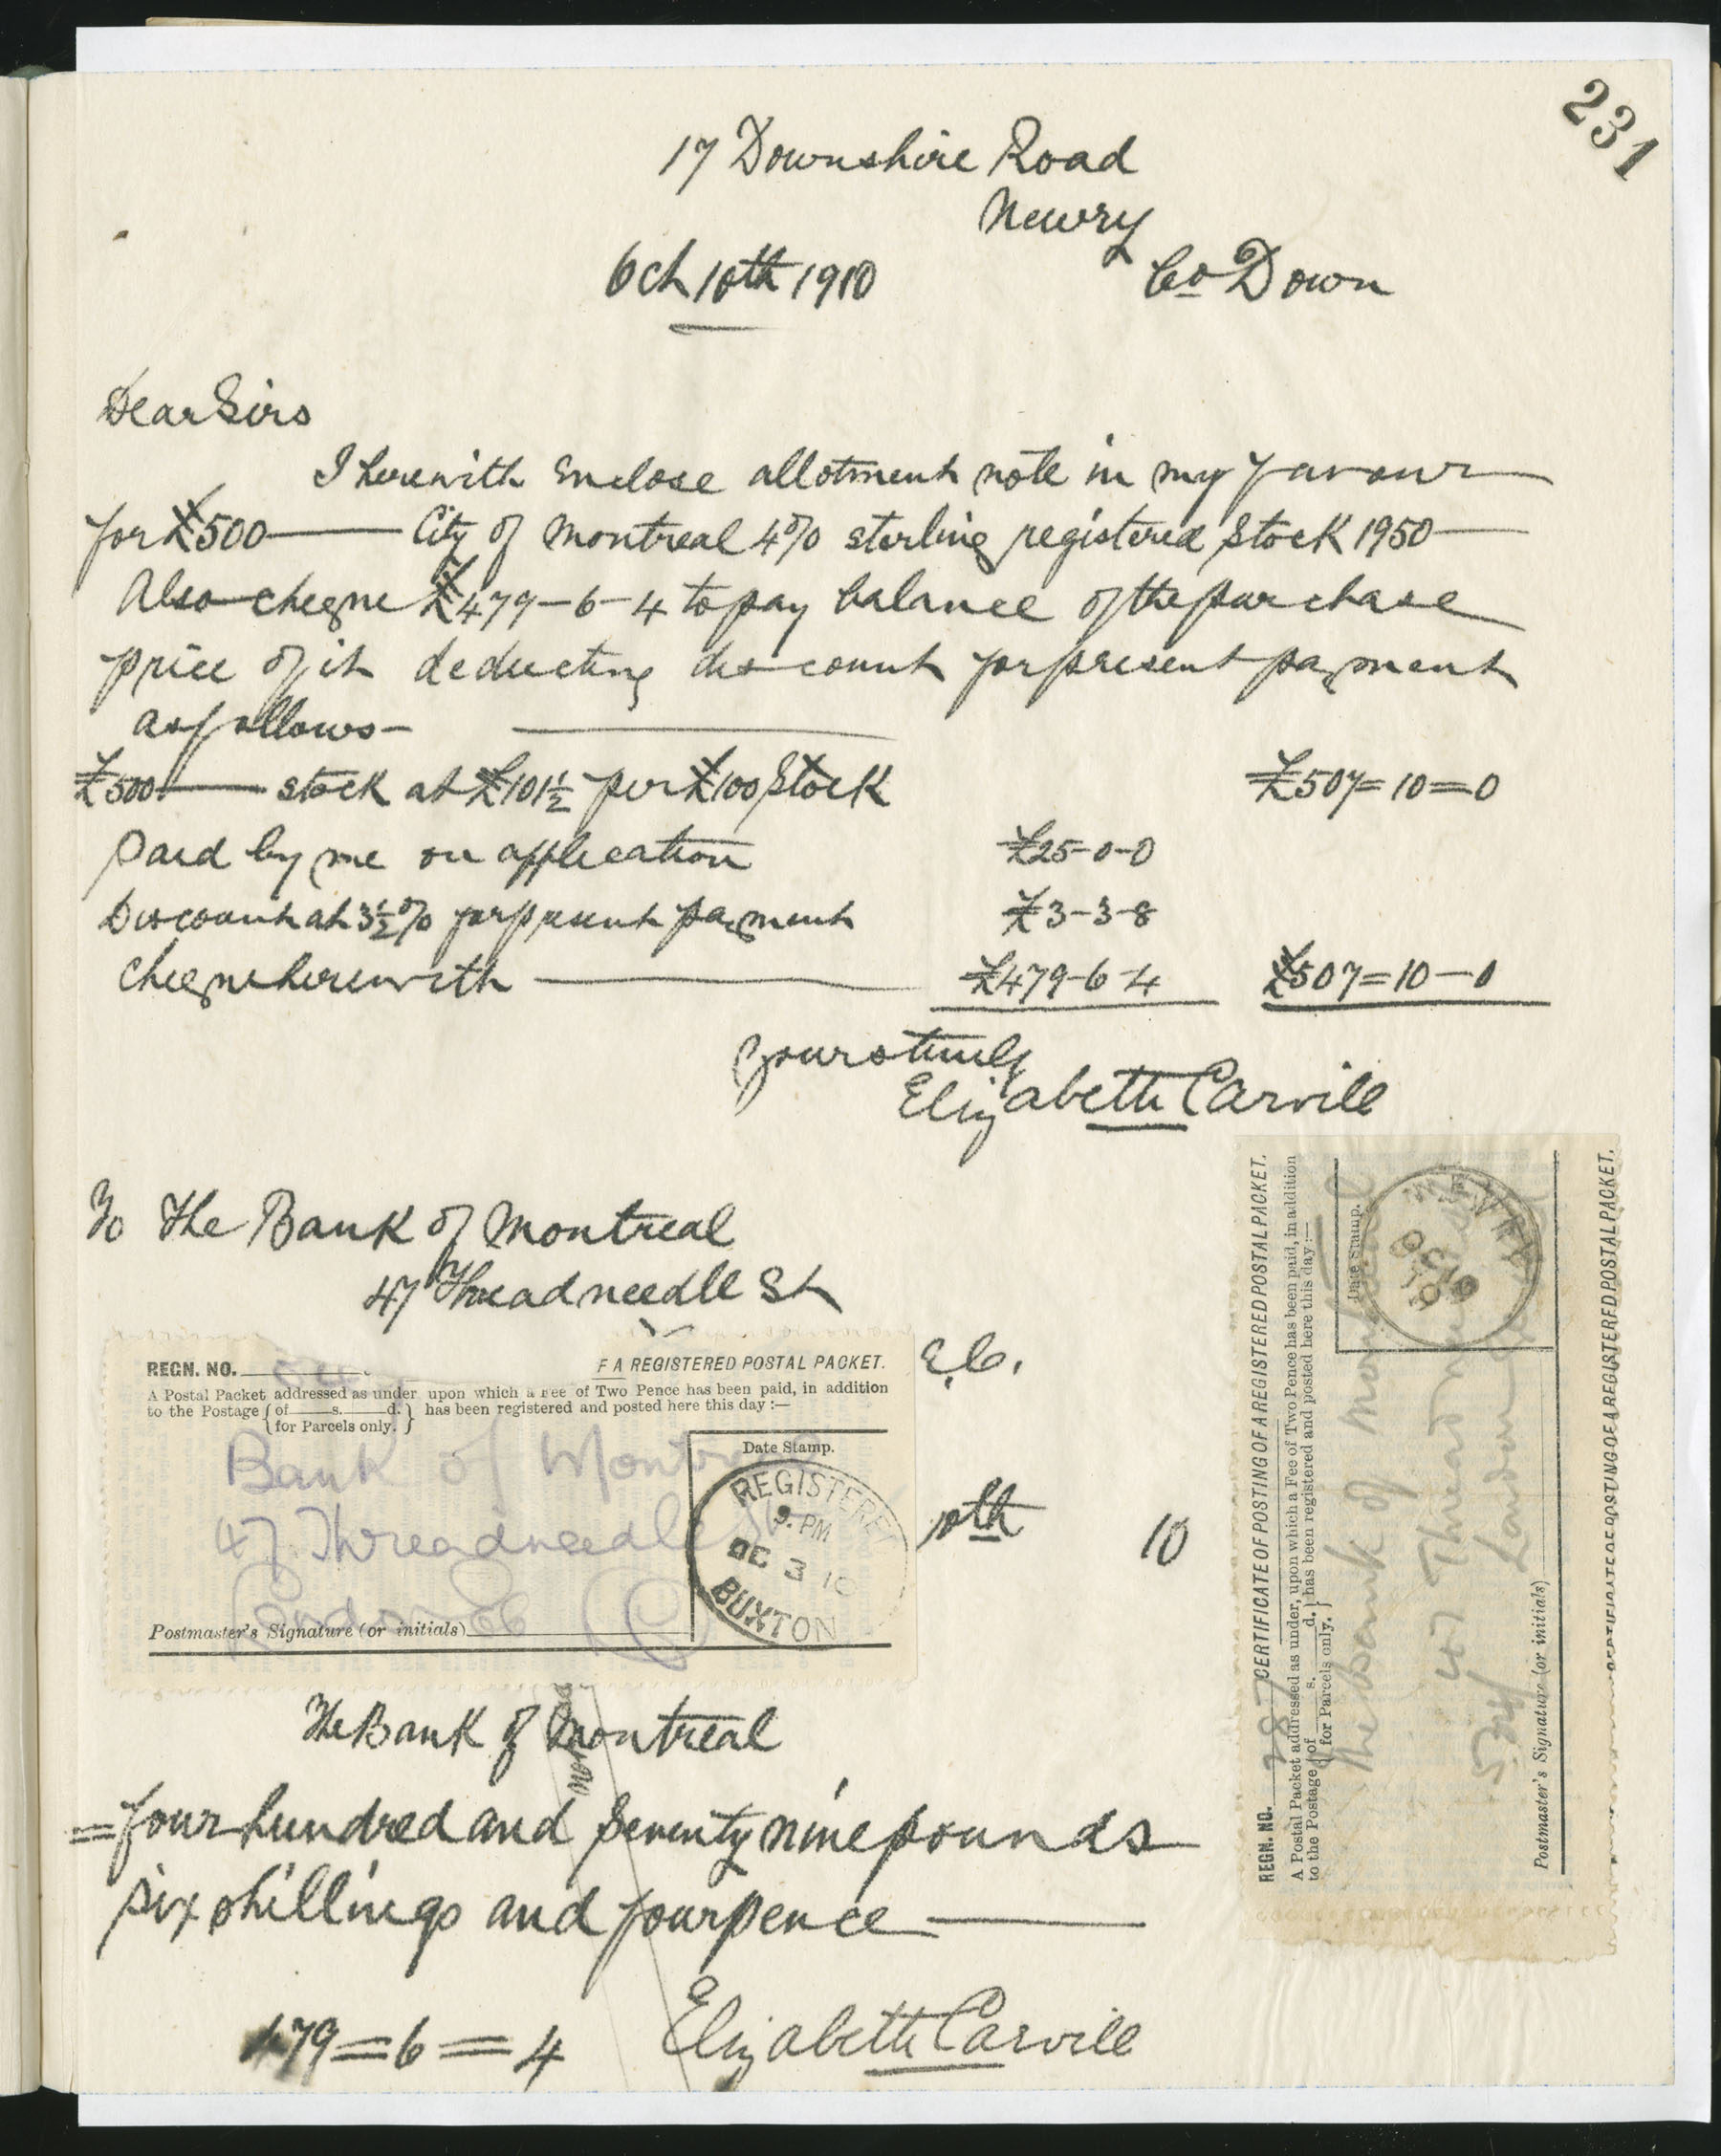 231
17 Downshire Road
Newry
Co Down
Oct 10th 1910
Dear Sirs
I herewith enclose allotment note in my favour
for £500 — City of Montreal 4% sterling registered Stock 1950 —
Also cheque £479-6-4 to pay balance of the purchase
price of it deducting discount for present payment
as follows —
£500 — stock at £101½ per £100 Stock £507=10=0
Paid by me on application £25-0-0
Discount at 3½% for present payment £3-3-8
Cheque herewith — £479-6-4 £507=10-0
Yours truly
Elizabeth Carvill
To The Bank of Montreal
47 Threadneedle St
E.C.
REGN. NO. F A REGISTERED POSTAL PACKET.
A Postal Packet addressed as under, upon which a Fee of Two Pence has been paid, in addition
to the Postage { of s. d. } has been registered and posted here this day :—
{ for Parcels only. }
Bank of Montreal
47 Threadneedle St
London EC
Date Stamp.
REGISTERED
9. PM
OC 3 10
BUXTON
Postmaster's Signature (or initials)
10th 10
The Bank of Montreal
=four hundred and seventy nine pounds
six shillings and four pence —
479=6=4 Elizabeth Carvill
REGN. NO. 287 CERTIFICATE OF POSTING OF A REGISTERED POSTAL PACKET.
A Postal Packet addressed as under, upon which a Fee of Two Pence has been paid, in addition
to the Postage { of s. d. } has been registered and posted here this day :—
{ for Parcels only. }
The Bank of Montreal
47 Threadneedle St
London
Date Stamp.
NEWRY
OC 10
10
Postmaster's Signature (or initials)
CERTIFICATE OF POSTING OF A REGISTERED POSTAL PACKET.